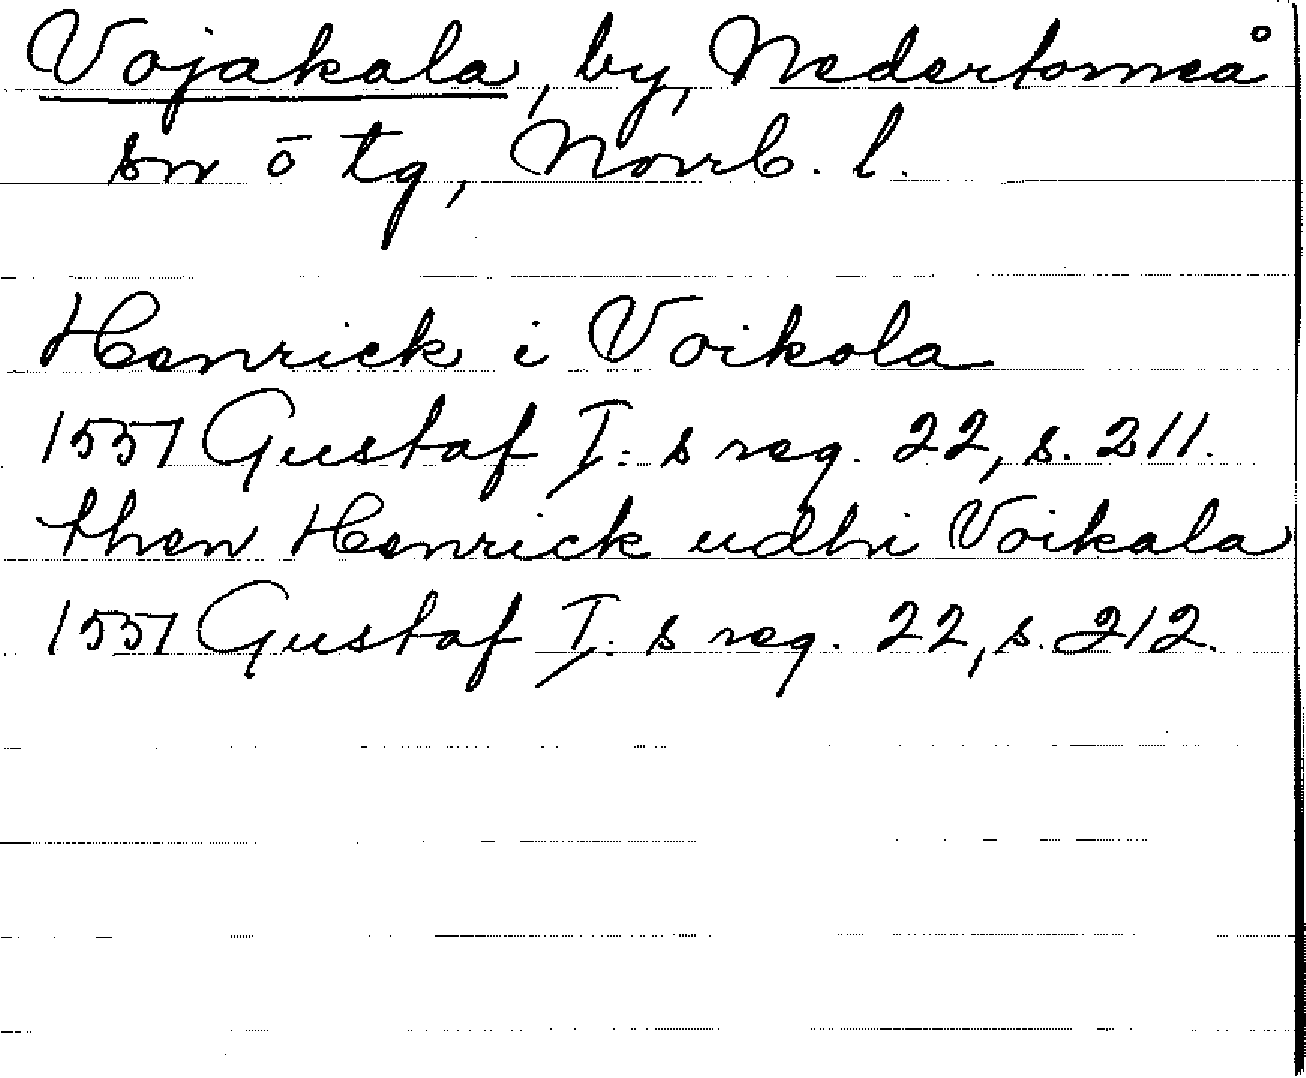 Vojakala, by, Nedertorneå
sn o tg, Norrb. l.
Henrick i Voikola
1551 Gustaf I: s reg. 22, s. 211.
then Henrick udhi Voikala
1551 Gustaf I: s reg. 22, s. 212.